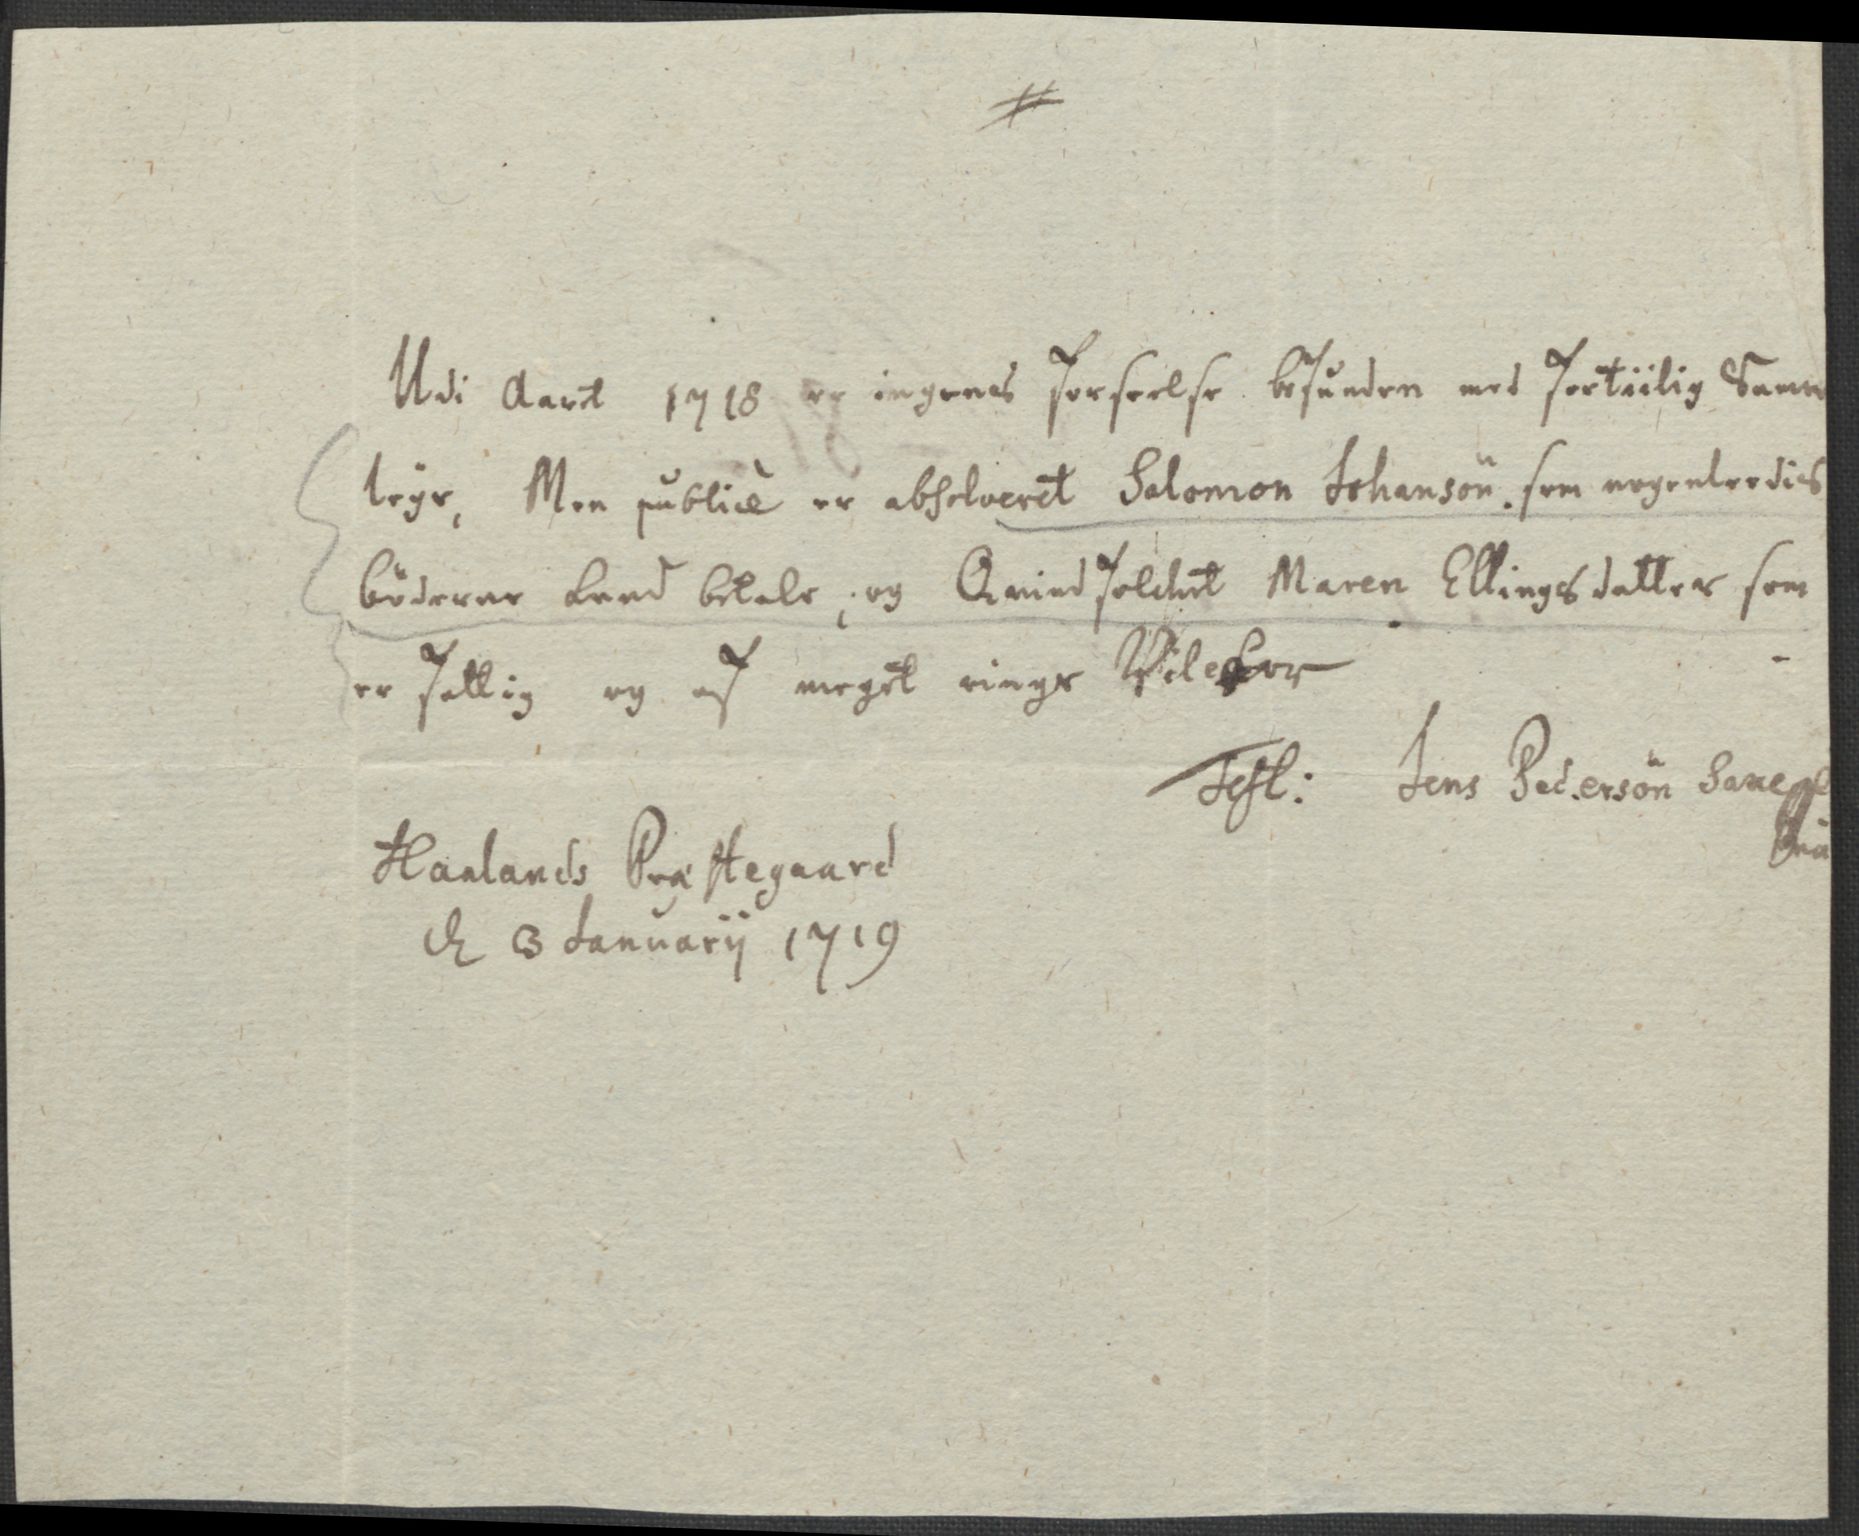 #
Udi Aaret 1718 er ingenes forseelse befunden med fortiilig Samm
leye, Men publice er absolveret Salomon Johansön som
böderne kand betale, og Qvindfolchet Maren Ellingsdatter som
er fattig og af meget ringe Vilckor
Test: Jens Pedersön
Haalands Præstegaard
d 3 Januarij 1719